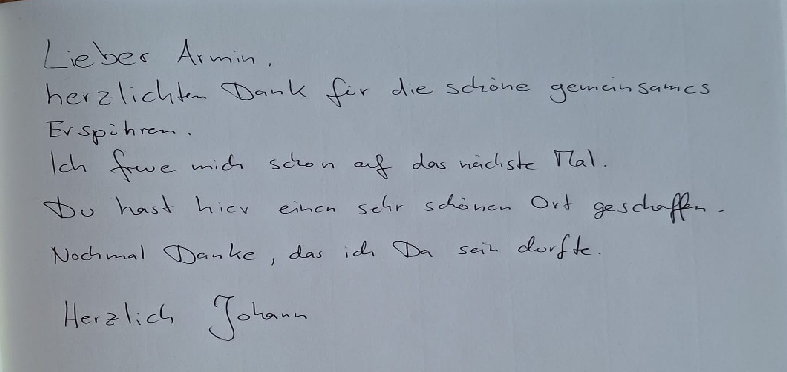 Lieber Armin,
herzlichten Dank für die schöne gemeinsames
Erspühren.
Ich freue mich schon auf das nächste Mal.
Du hast hier einen sehr schönen Ort geschaffen.
Nochmal Danke, das ich Da sein durfte.
Herzlich Johann